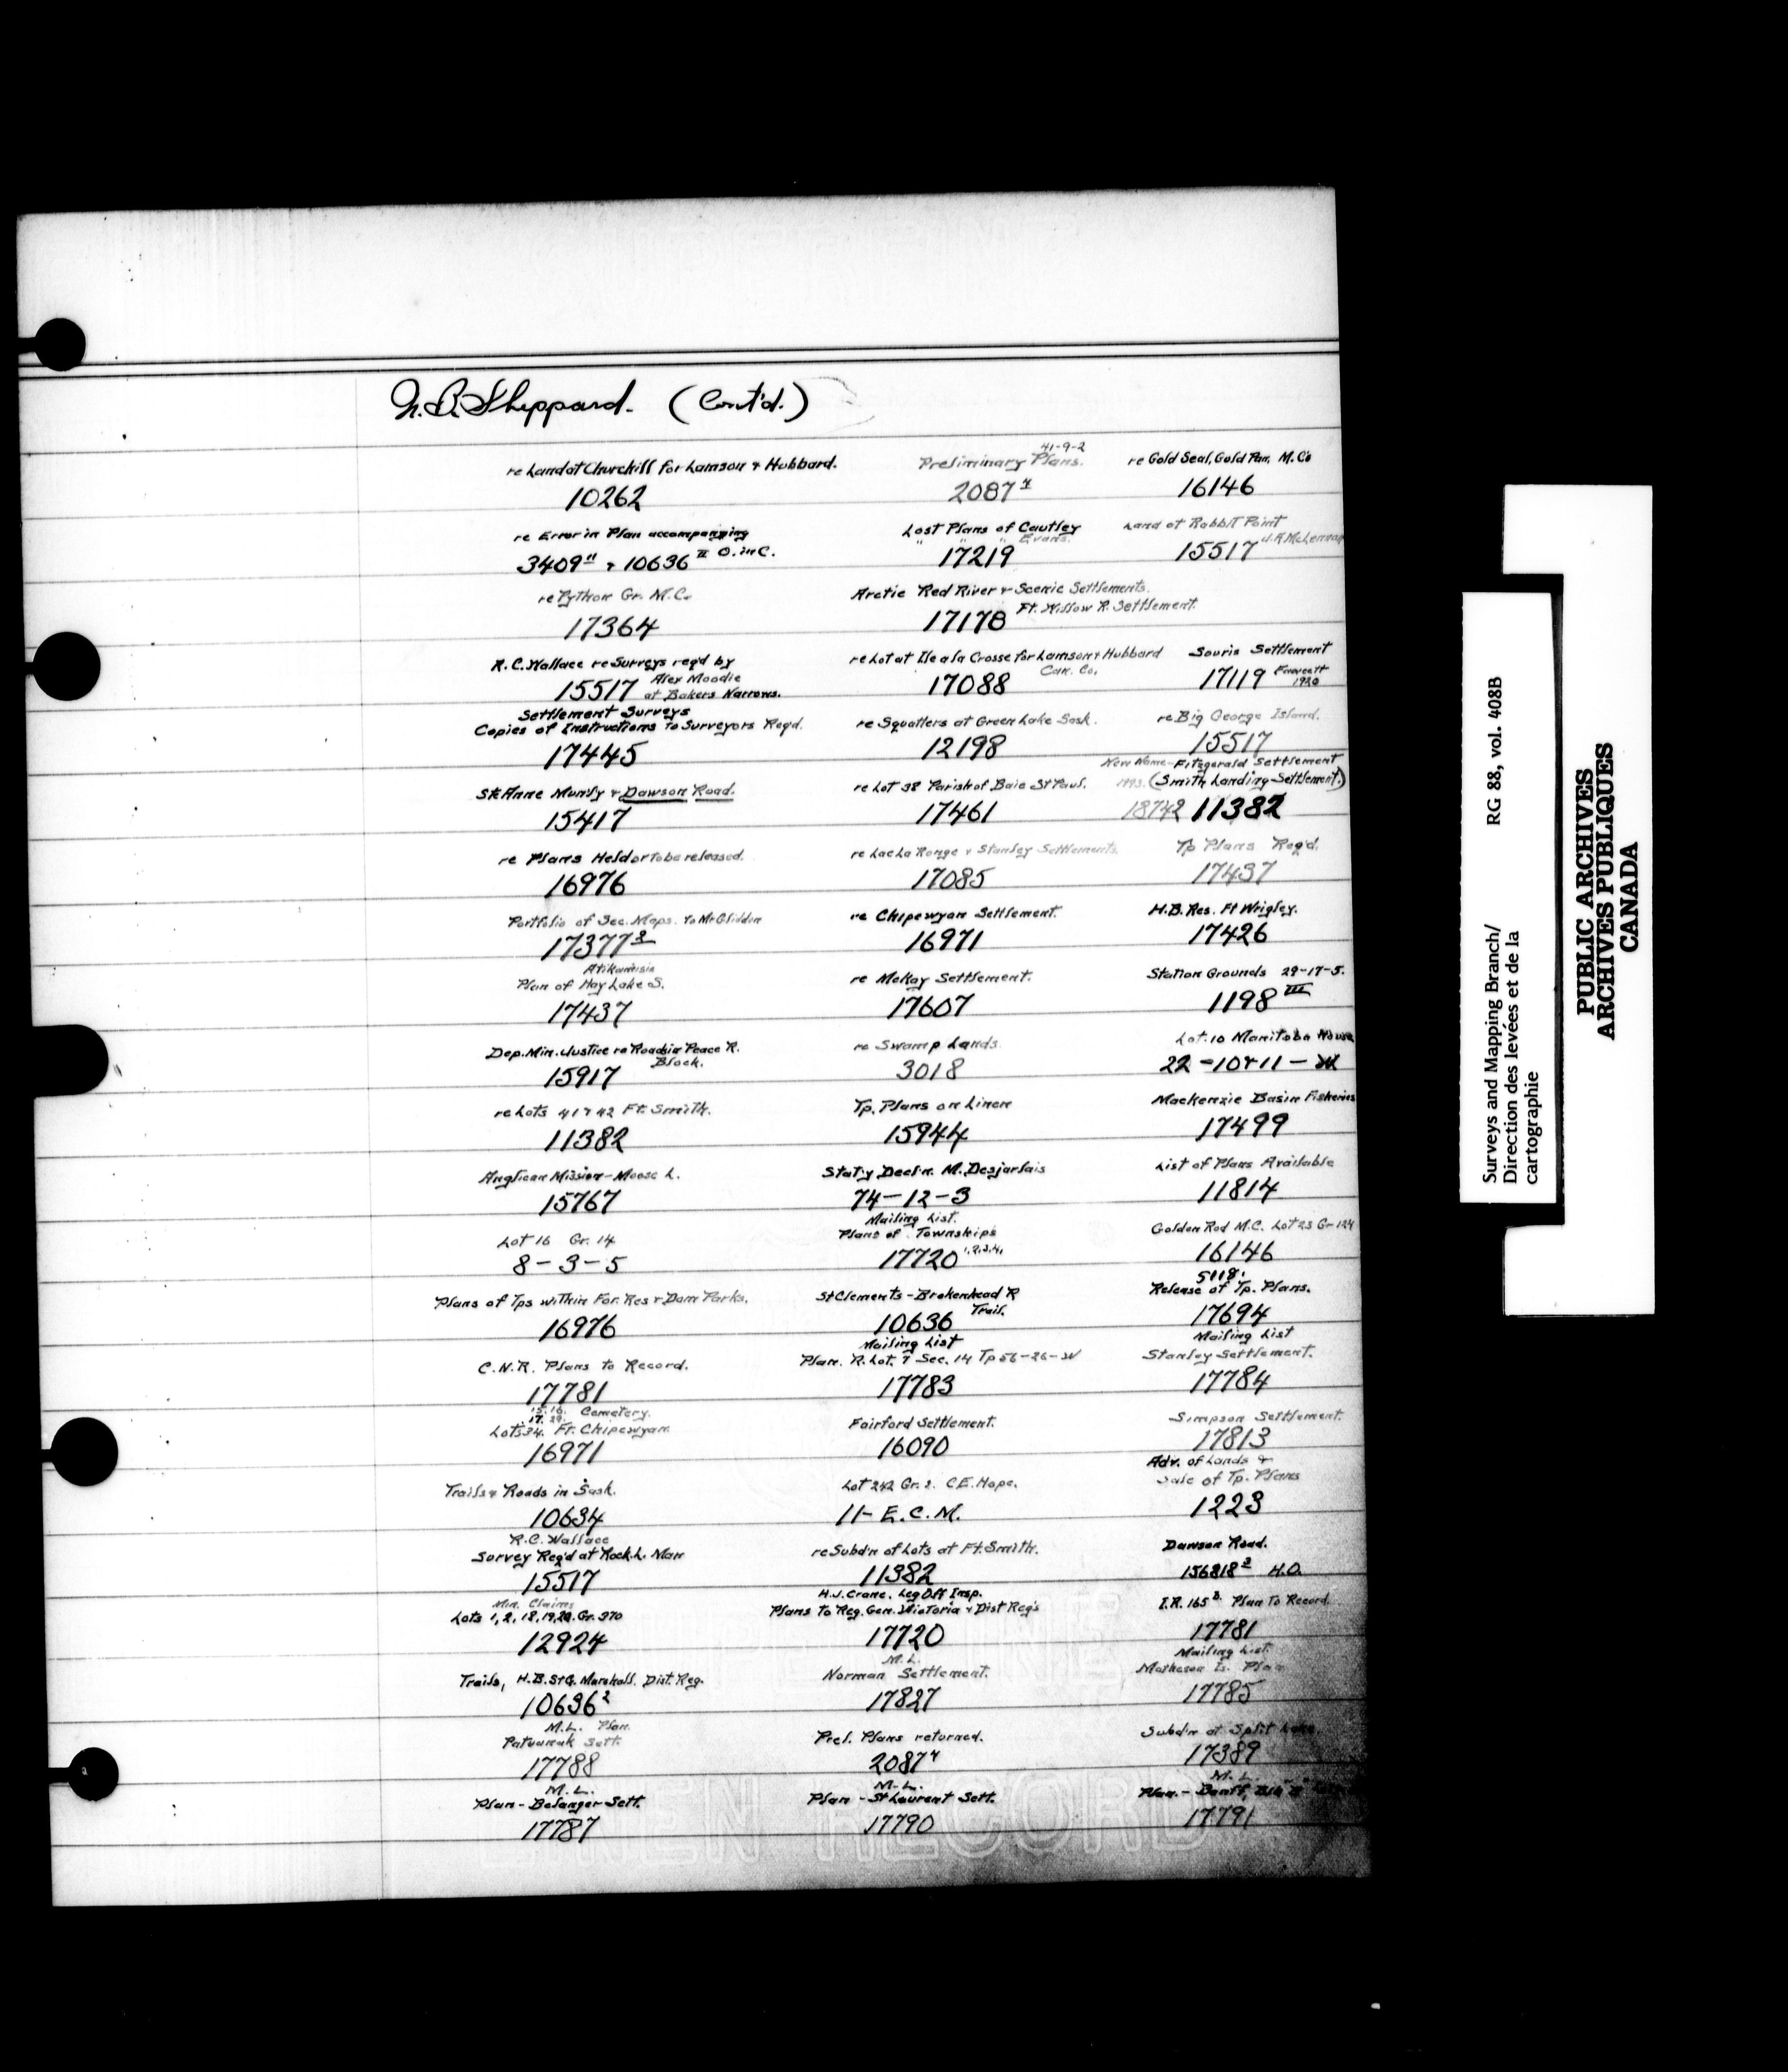 N. B. Sheppard. (Cont'd.)
41-9-2
re Land at Churchill for Lamson & Hubbard. Preliminary Plans. re Gold Seal, Gold Pan, M. Co
10262 2087 16146
re Error in Plan accompanying Lost Plans of Cautley Land at Rabbit Point
" " " Evans.
3409 II & 10636 II O. in C. 17219 15517
re Python Gr. M. Co Arctic Red River & Scenic Settlements.
17364 17178 Ft. Willow R. Settlement.
R. C. Wallace re Surveys req'd by re Lot at Ile a la Crosse for Lamson & Hubbard Souris Settlement
Alex Moodie Can. Co.
15517 at Bakers Narrows. 17088 17119 Fawcett 1920
Settlement Surveys
Copies of Instructions to Surveyors Req'd. re Squatters at Green Lake Sask. re Big George Island.
17445 12198 15517
New Name - Fitzgerald Settlement
Ste Anne Munly & Dawson Road. re Lot 38 Parish of Baie St Paul. (Smith Landing Settlement.)
15417 17461 18742 11382
re Plans Held or to be released. re Lac La Ronge & Stanley Settlements. Tp Plans Req'd.
16976 17085 17437
Portfolio of Sec. Maps. to Mr Gliddon re Chipewyan Settlement. H.B. Res. Ft Wrigley.
17377 3 16971 17426
Plan of Hay Lake S. re McKay Settlement. Station Grounds 29-17-5.
17437 17607 1198 III
Dep. Min. Justice re Roads in Peace R. re Swamp Lands. Lot 10 Manitoba House
Block.
15917 3018 22-10&11-W
re Lots 41 & 42 Ft. Smith. Tp. Plans on Linen Mackenzie Basin Fisheries
11382 15944 17499
Anglican Mission - Moose L. Stat'y Decl'n. M. Desjarlais List of Plans Available
15767 74-12-3 11814
Mailing List.
Lot 16 Gr. 14 Plans of Townships Golden Rod M.C. Lot 23 Gr 124
8-3-5 17720 1.2.3.4. 16146
5118.
Plans of Tps within For. Res & Dom Parks. St Clements - Brokenhead R Release of Tp. Plans.
Trail.
16976 10636 17694
Mailing List Mailing List
C.N.R. Plans to Record. Plan. R. Lot. 7 Sec. 14 Tp 56-26-W Stanley Settlement.
17781 17783 17784
15. 16. Cemetery.
17. 29.
Lots 34. Ft. Chipewyan. Fairford Settlement. Simpson Settlement.
16971 16090 17813
Adv. of Lands &
Trails & Roads in Sask. Lot 242 Gr. 2. C.E. Hope. Sale of Tp. Plans
10634 11-E.C.M. 1223
R.C. Wallace
Survey Req'd at Rock. L. Man re Subd'n of Lots at Ft. Smith. Dawson Road.
15517 11382 156818 2 H.O.
Min. Claims H.J. Crane. Leg Off Insp.
Lots 1, 2, 18, 19, 20. Gr. 370 Plans to Reg. Gen. Victoria & Dist Reg's I.R. 165 Plan to Record.
12924 17720 17781
M.L. Mailing List
Trails, H.B. St G. Marshall. Dist. Reg. Norman Settlement. Matheson Is. Plan
10636 2 17827 17785
M.L. Plan.
Patuanak Sett. Prel. Plans returned. Subd'n at Split Lake.
17788 2087 17389
M.L. M.L. M.L.
Plan - Belanger Sett. Plan - St Laurent Sett. Plan. - Banff, Blk "B"
17787 17790 17791
Surveys and Mapping Branch/ RG 88, vol. 408B
Direction des levées et de la
cartographie
PUBLIC ARCHIVES
ARCHIVES PUBLIQUES
CANADA